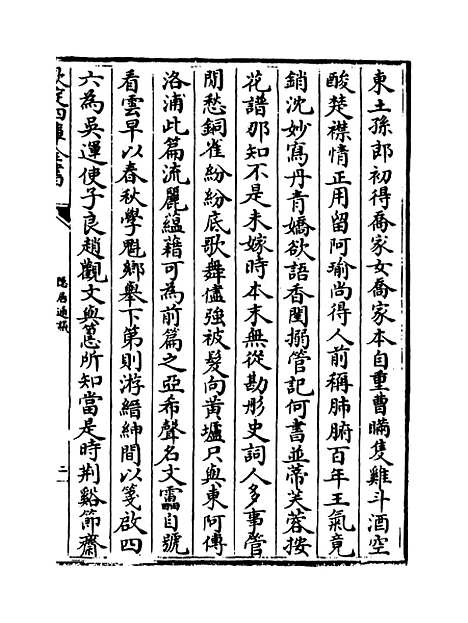 東土孫郎初得喬家女喬家本自重曹瞞隻雞斗酒空
酸楚襟情正用留阿瑜尚得人前稱肺腑百年王氣竟
銷沈妙寫丹青嬌欲語香閨搦管記何書並蒂芙蓉按
花譜那知不是未嫁時本末無從勘彤史詞人多事管
閒愁銅雀紛紛底歌舞儘強被髮向黃壚只與東阿傳
洛浦此篇流麗蘊藉可為前篇之亞希聲名文靁自號
看雲早以春秋學魁鄉舉下第則游縉紳間以箋啟四
六為吳運使子良趙觀文與𢡟所知當是時荆谿節齋
欽定四庫全書
隱居通議
二